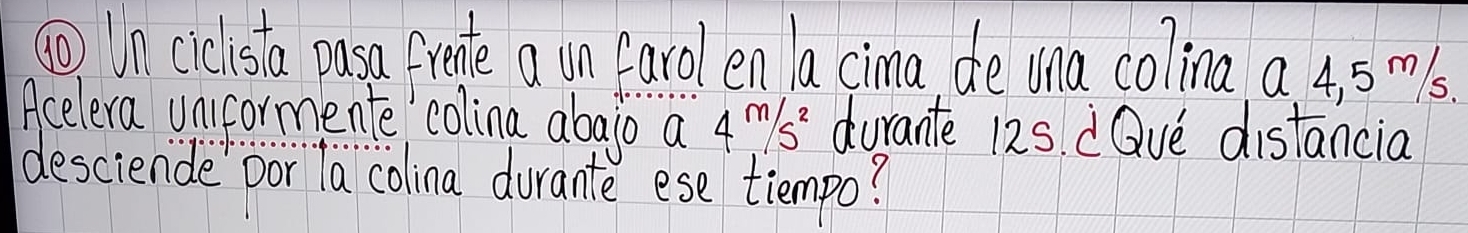 ⑩ Un ciclista pasa frente a un farol en la cima de una colina a 4,5 m/s.
Acelera uniformente colina abajo a 4 m/s² durante 12s. ¿Qué distancia
desciende por la colina durante ese tiempo?